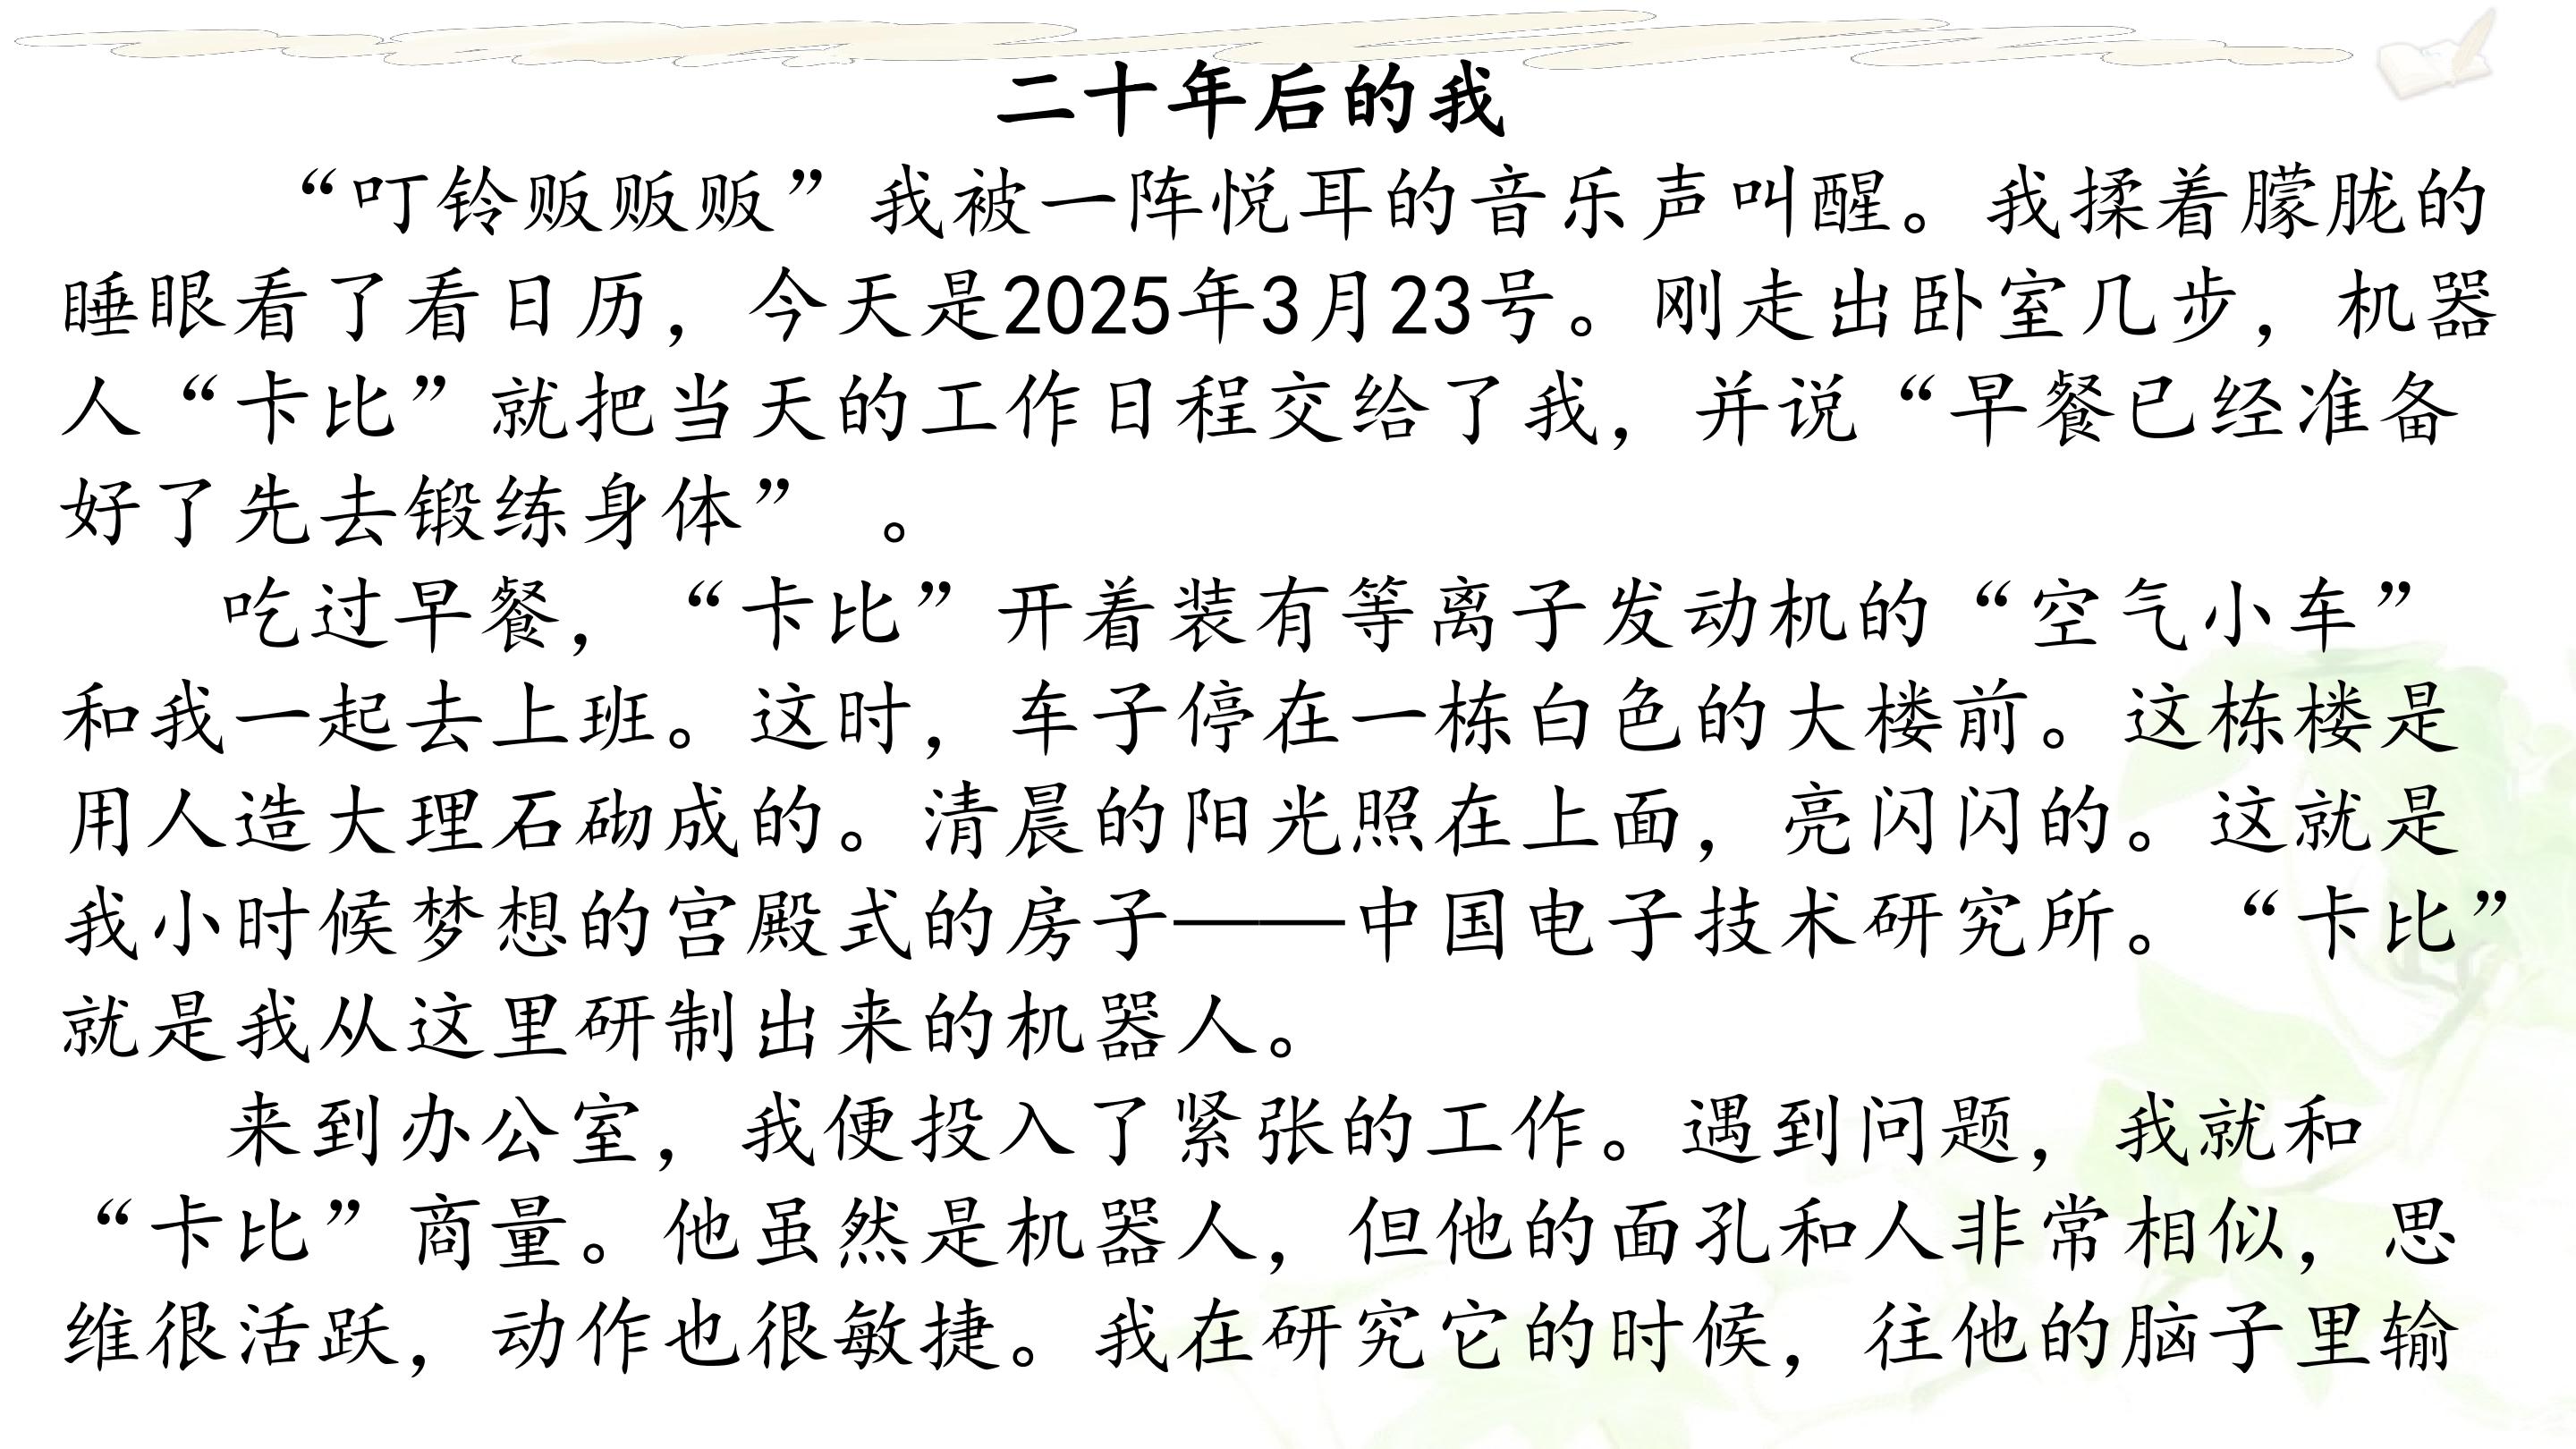 二十年后的我
“叮铃贩贩贩”我被一阵悦耳的音乐声叫醒。我揉着朦胧的
睡眼看了看日历，今天是2025年3月23号。刚走出卧室几步，机器
人“卡比”就把当天的工作日程交给了我，并说“早餐已经准备
好了先去锻练身体” 。
吃过早餐，“卡比”开着装有等离子发动机的“空气小车”
和我一起去上班。这时，车子停在一栋白色的大楼前。这栋楼是
用人造大理石砌成的。清晨的阳光照在上面，亮闪闪的。这就是
我小时候梦想的宫殿式的房子——中国电子技术研究所。“卡比”
就是我从这里研制出来的机器人。
来到办公室，我便投入了紧张的工作。遇到问题，我就和
“卡比”商量。他虽然是机器人，但他的面孔和人非常相似，思
维很活跃，动作也很敏捷。我在研究它的时候，往他的脑子里输